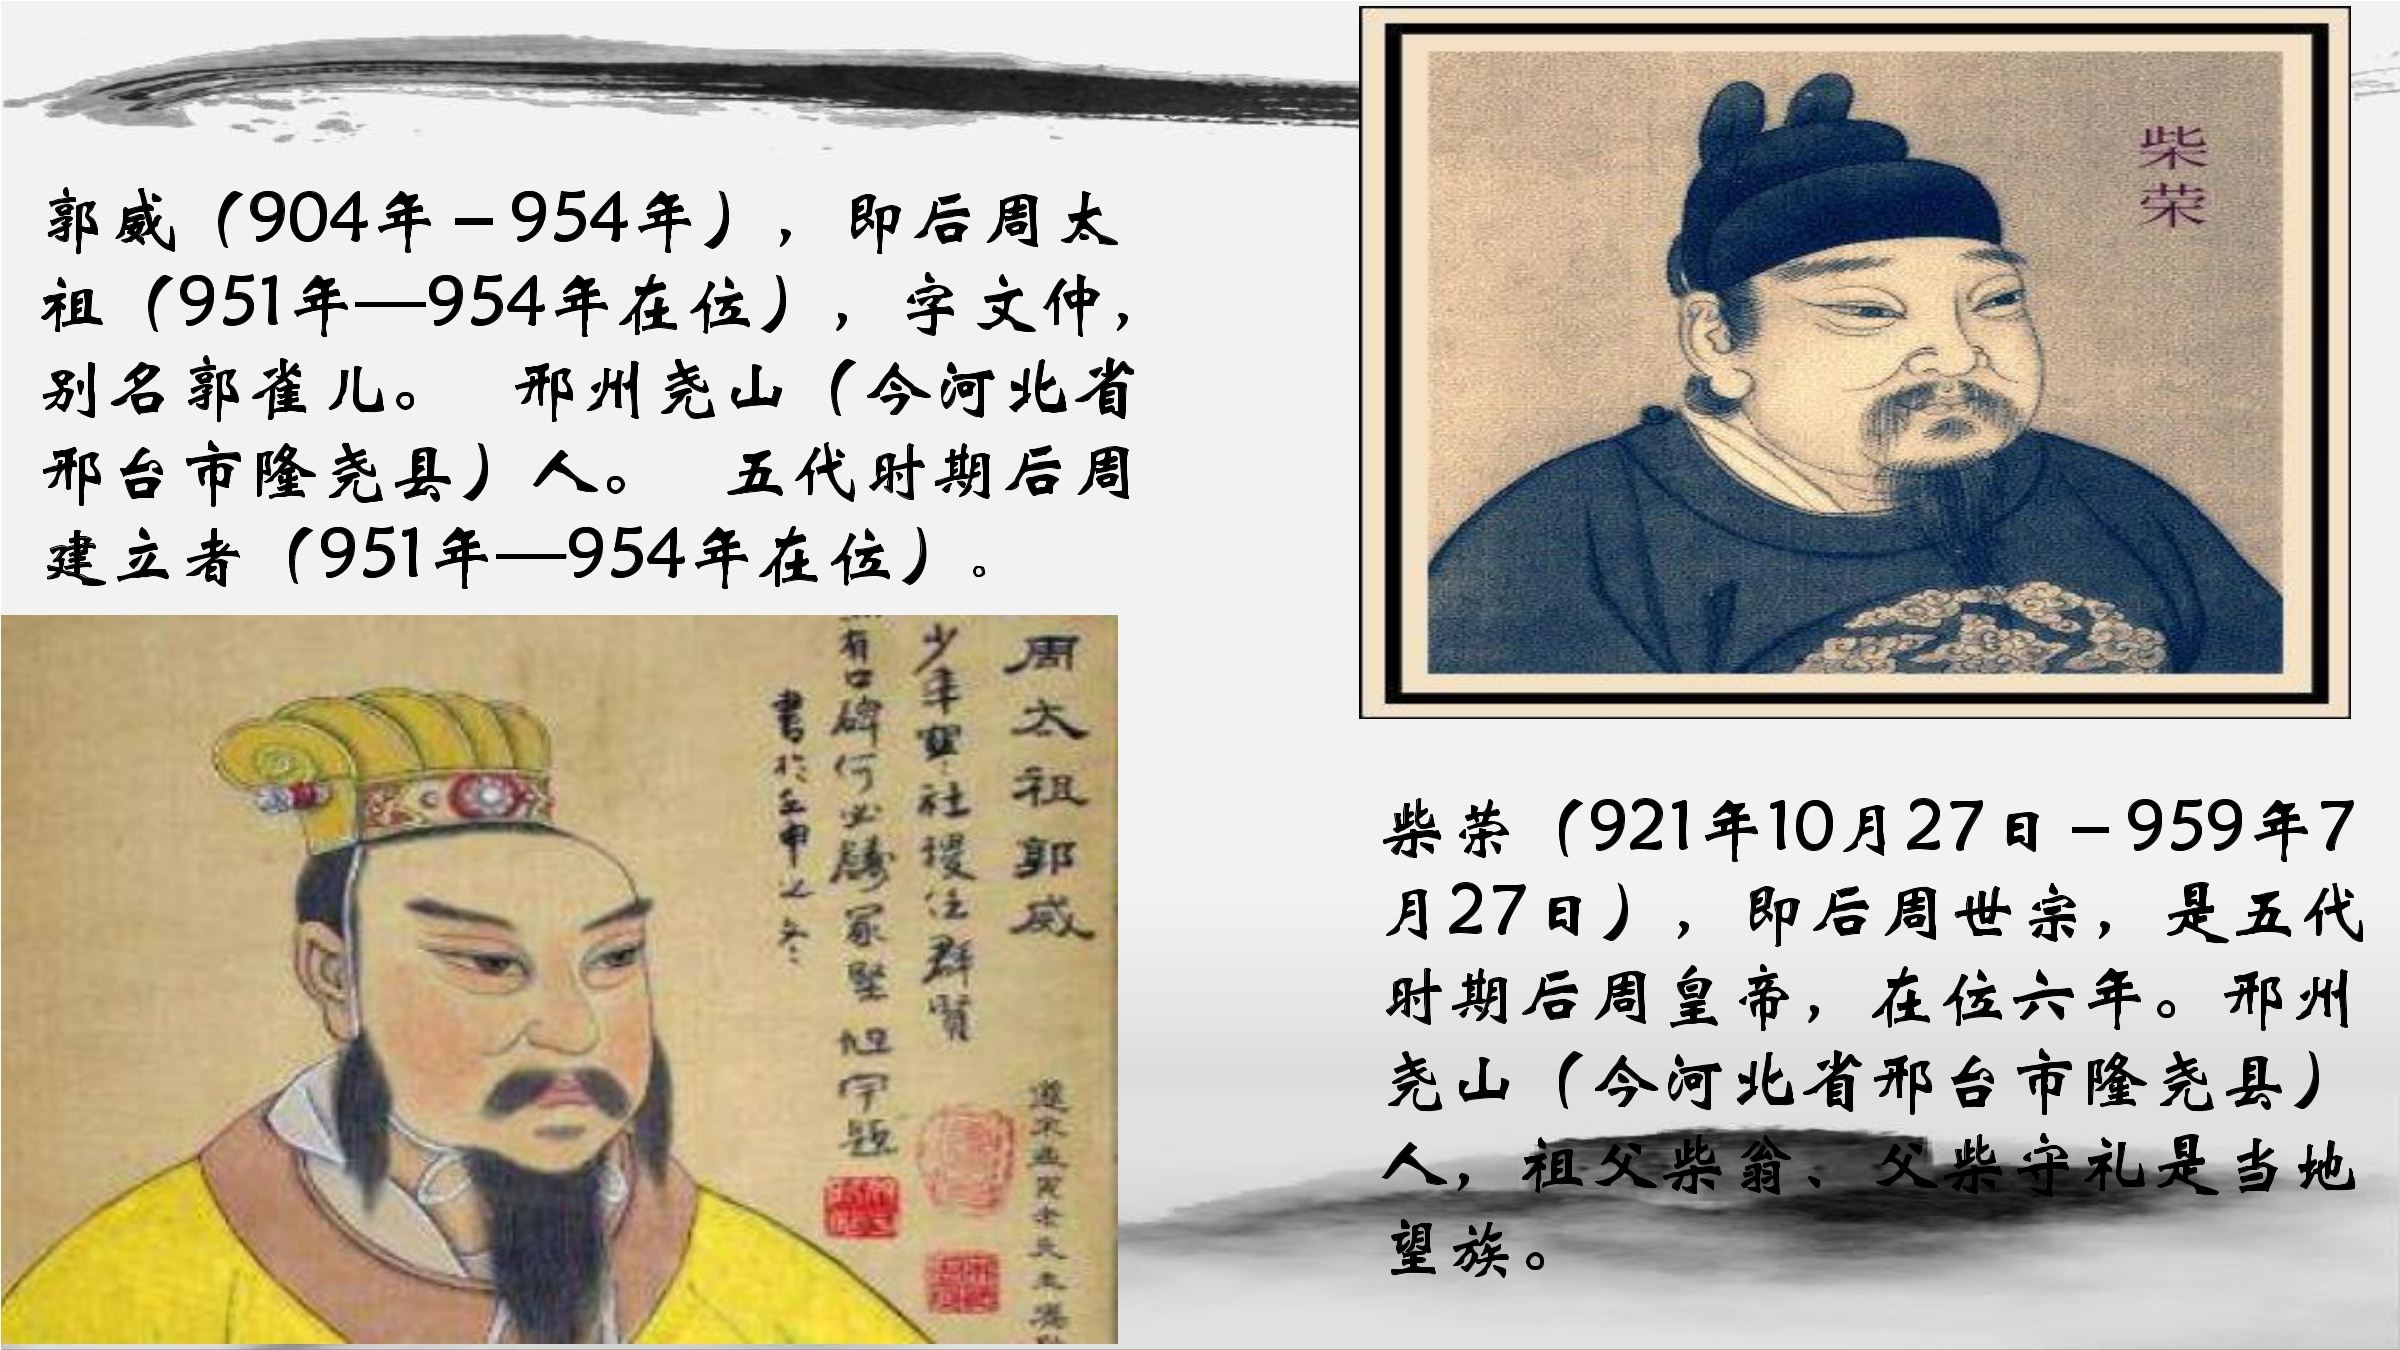 郭威（904年–954年），即后周太
祖（951年—954年在位），字文仲，
别名郭雀儿。 邢州尧山（今河北省
邢台市隆尧县）人。 五代时期后周
建立者（951年—954年在位）。
柴
荣
周太祖郭威
少年 社稷任群賢
有口碑何必 冢堅 旭宇題
書於 申之冬
柴荣（921年10月27日–959年7
月27日），即后周世宗，是五代
时期后周皇帝，在位六年。邢州
尧山（今河北省邢台市隆尧县）
人，祖父柴翁、父柴守礼是当地
望族。